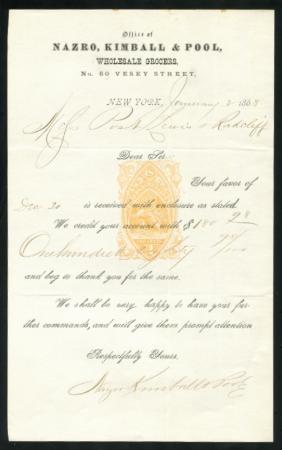 Office of
NAZRO, KIMBALL & POOL,
WHOLESALE GROCERS,
No. 60 VESEY STREET,
NEW YORK, January 2 1868
Post, Lewis & Radcliff
Dear Sir
Your favor of
Dec 30 is received with enclosure as stated.
We credit your account with $ 180 98
One hundred eighty 98/100
and beg to thank you for the same.
We shall be very happy to have your fur-
ther commands, and will give them prompt attention
Respectfully Yours,
Nazro Kimball & Pool